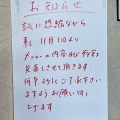 お知らせ
誠に恐縮ながら
11月1日より
メニューの内容及び
見直しさせて頂きます
何卒よろしくご了承下さい
ますようお願い申し
上げます